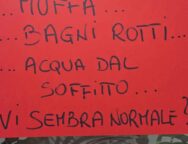 MUFFA...
...BAGNI ROTTI...
... ACQUA DAL
SOFFITTO...
VI SEMBRA NORMALE?